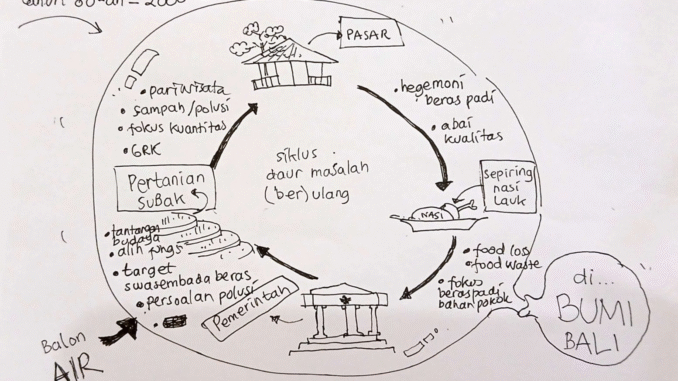 PASAR
• pariwisata
• sampah/polusi
• fokus kuantitas
• GRK
• hegemoni
beras padi
• abai
kualitas
siklus
daur masalah
(ber)ulang
Pertanian
SUBAK
sepiring
nasi
Lauk
NASI
• tantangan
budaya
• alih fungsi
• target
swasembada beras
• persoalan polusi
• food loss
• food waste
• fokus
beras padi
bahan pokok
Pemerintah
di...
BUMI
BALI
Balon
AIR